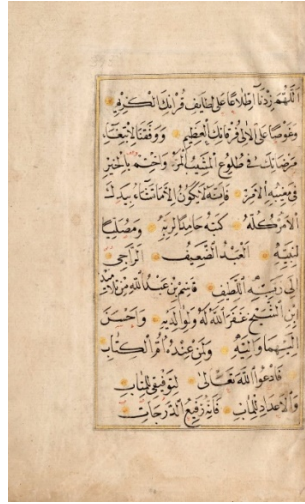 اللهم زدنا اطلاعا على لطايف قرانك الكريم
وغوصا على لالى فرقانك العظيم ووفقنا لابتغاء
مرضاتك فى طلوع المشيب المر واختم بالخير
فى مغيبه الامر فانه لا يكون الا ما تشاء بيدك
الامر كله كتبه حامدا لربه ومصليا
لنبيه العبد الضعيف الراجى
الى ربه اللطيف قاسم بن عبد الله من تلاميذ
ابن الشيخ غفر الله له ولوالديه واحسن
اليهما واليه ولمن عنده ام الكتاب
فادعوا الله تعالى لتوفيقى للمتاب
والاعداد للماب فانه رفيع الدرجات